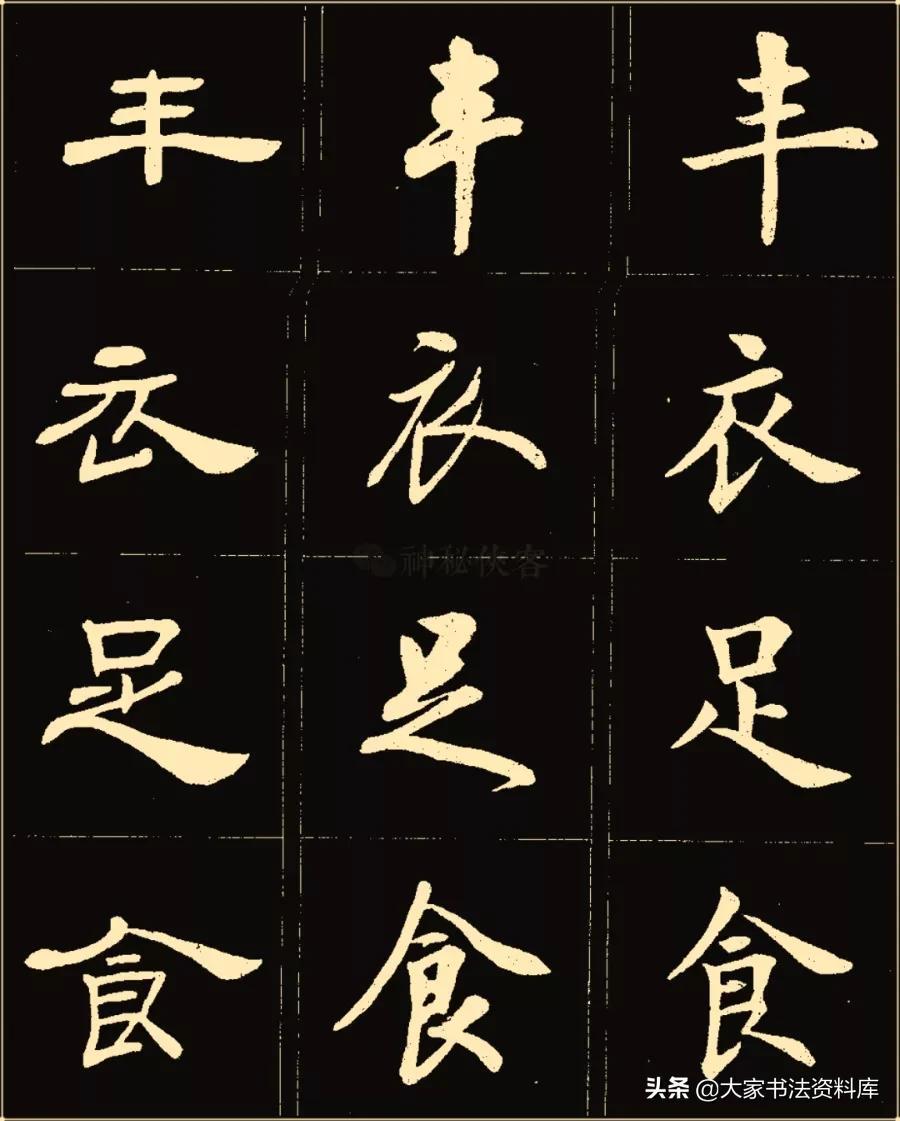 丰 丰 丰
衣 衣 衣
神秘侠客
足 足 足
食 食 食
头条 @大家书法资料库